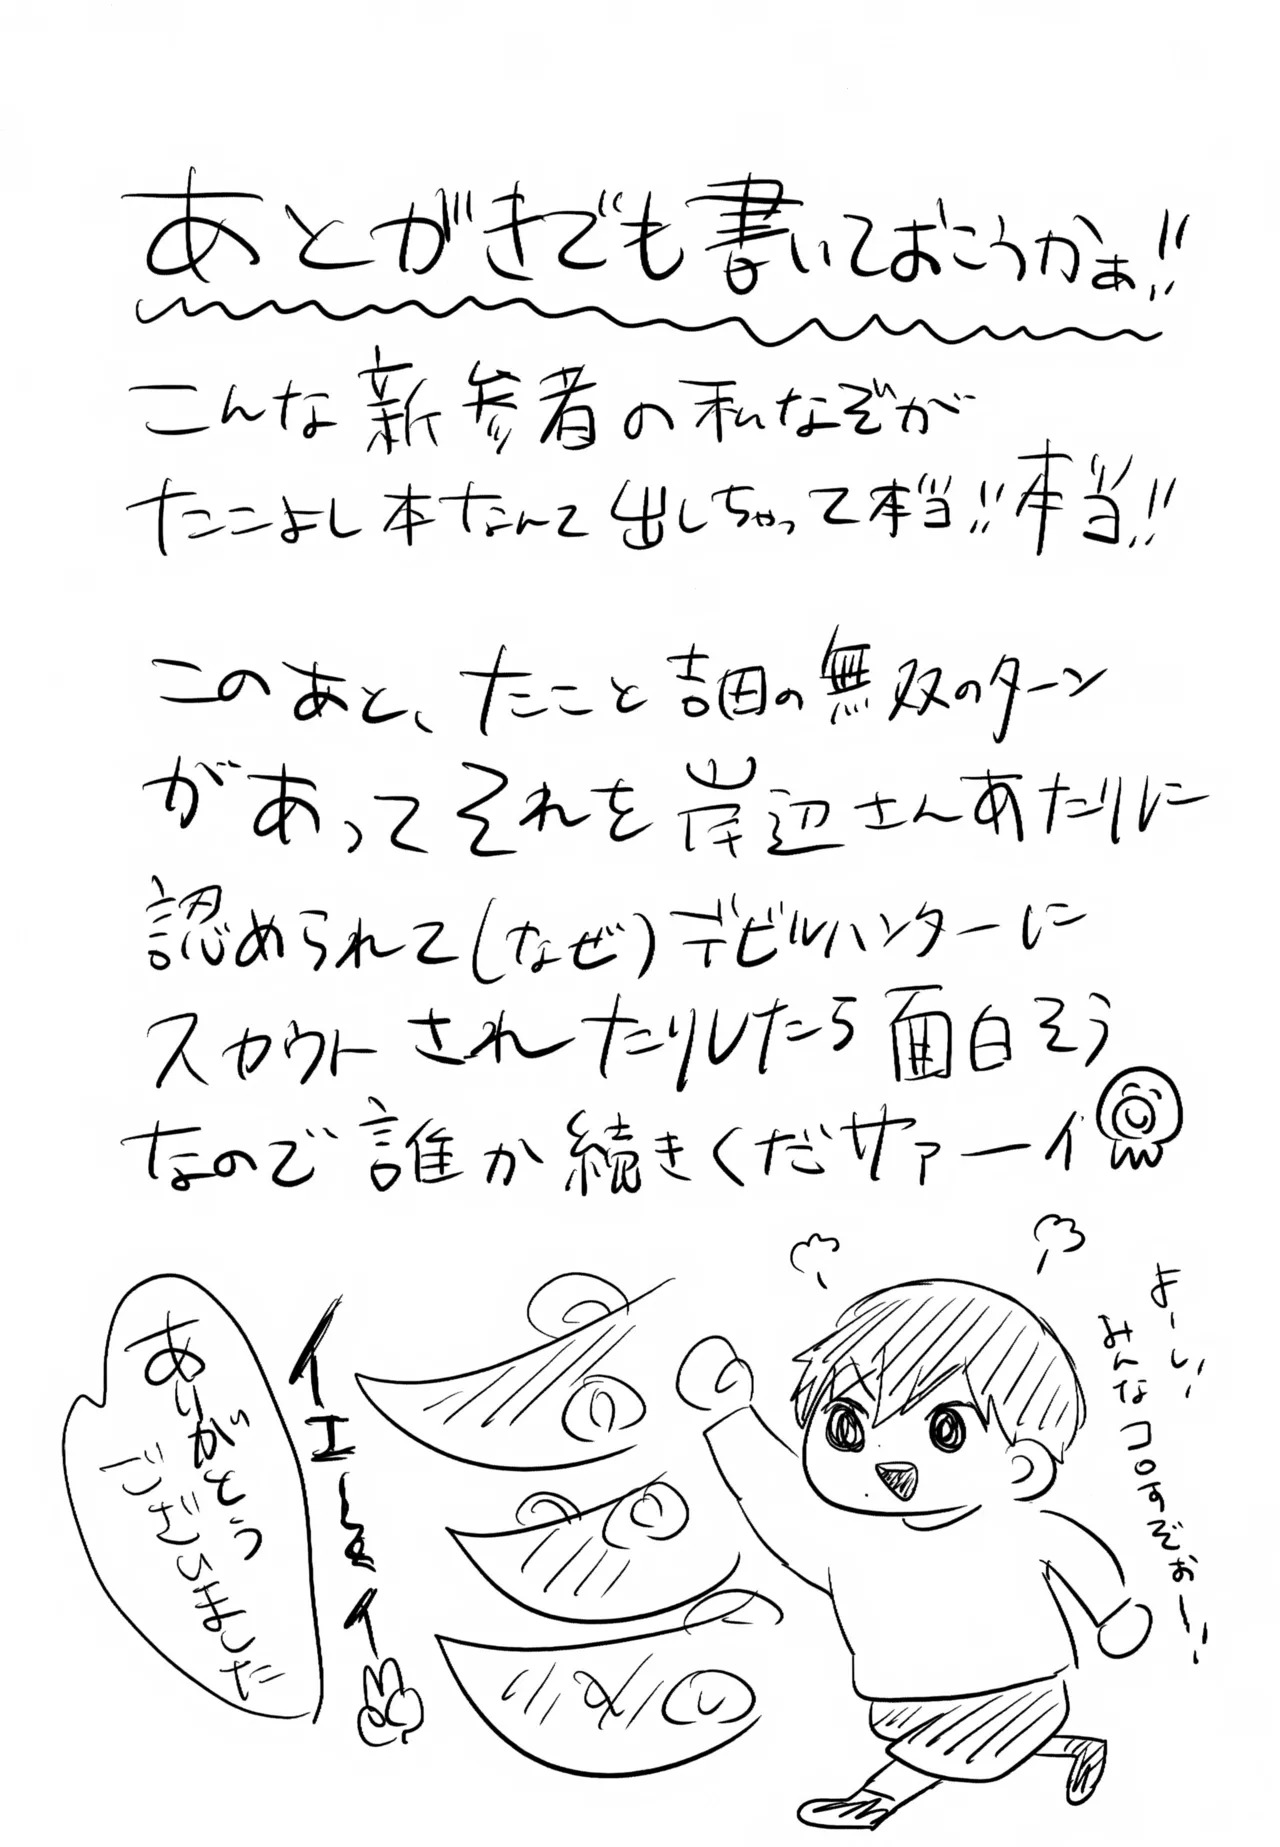 あとがきでも書いておこうかぁ!!
こんな新参者の私なぞが
たこよし本なんて出しちゃって本当!!本当!!
このあと、たこと吉田の無双のターン
があってそれを岸辺さんあたりに
認められて(なぜ)デビルハンターに
スカウトされたりしたら面白そう
なので誰か続きくだサァーイ
よーし!!
みんなコロすぞぉー!!
イエーイ
ありがとう
ございました